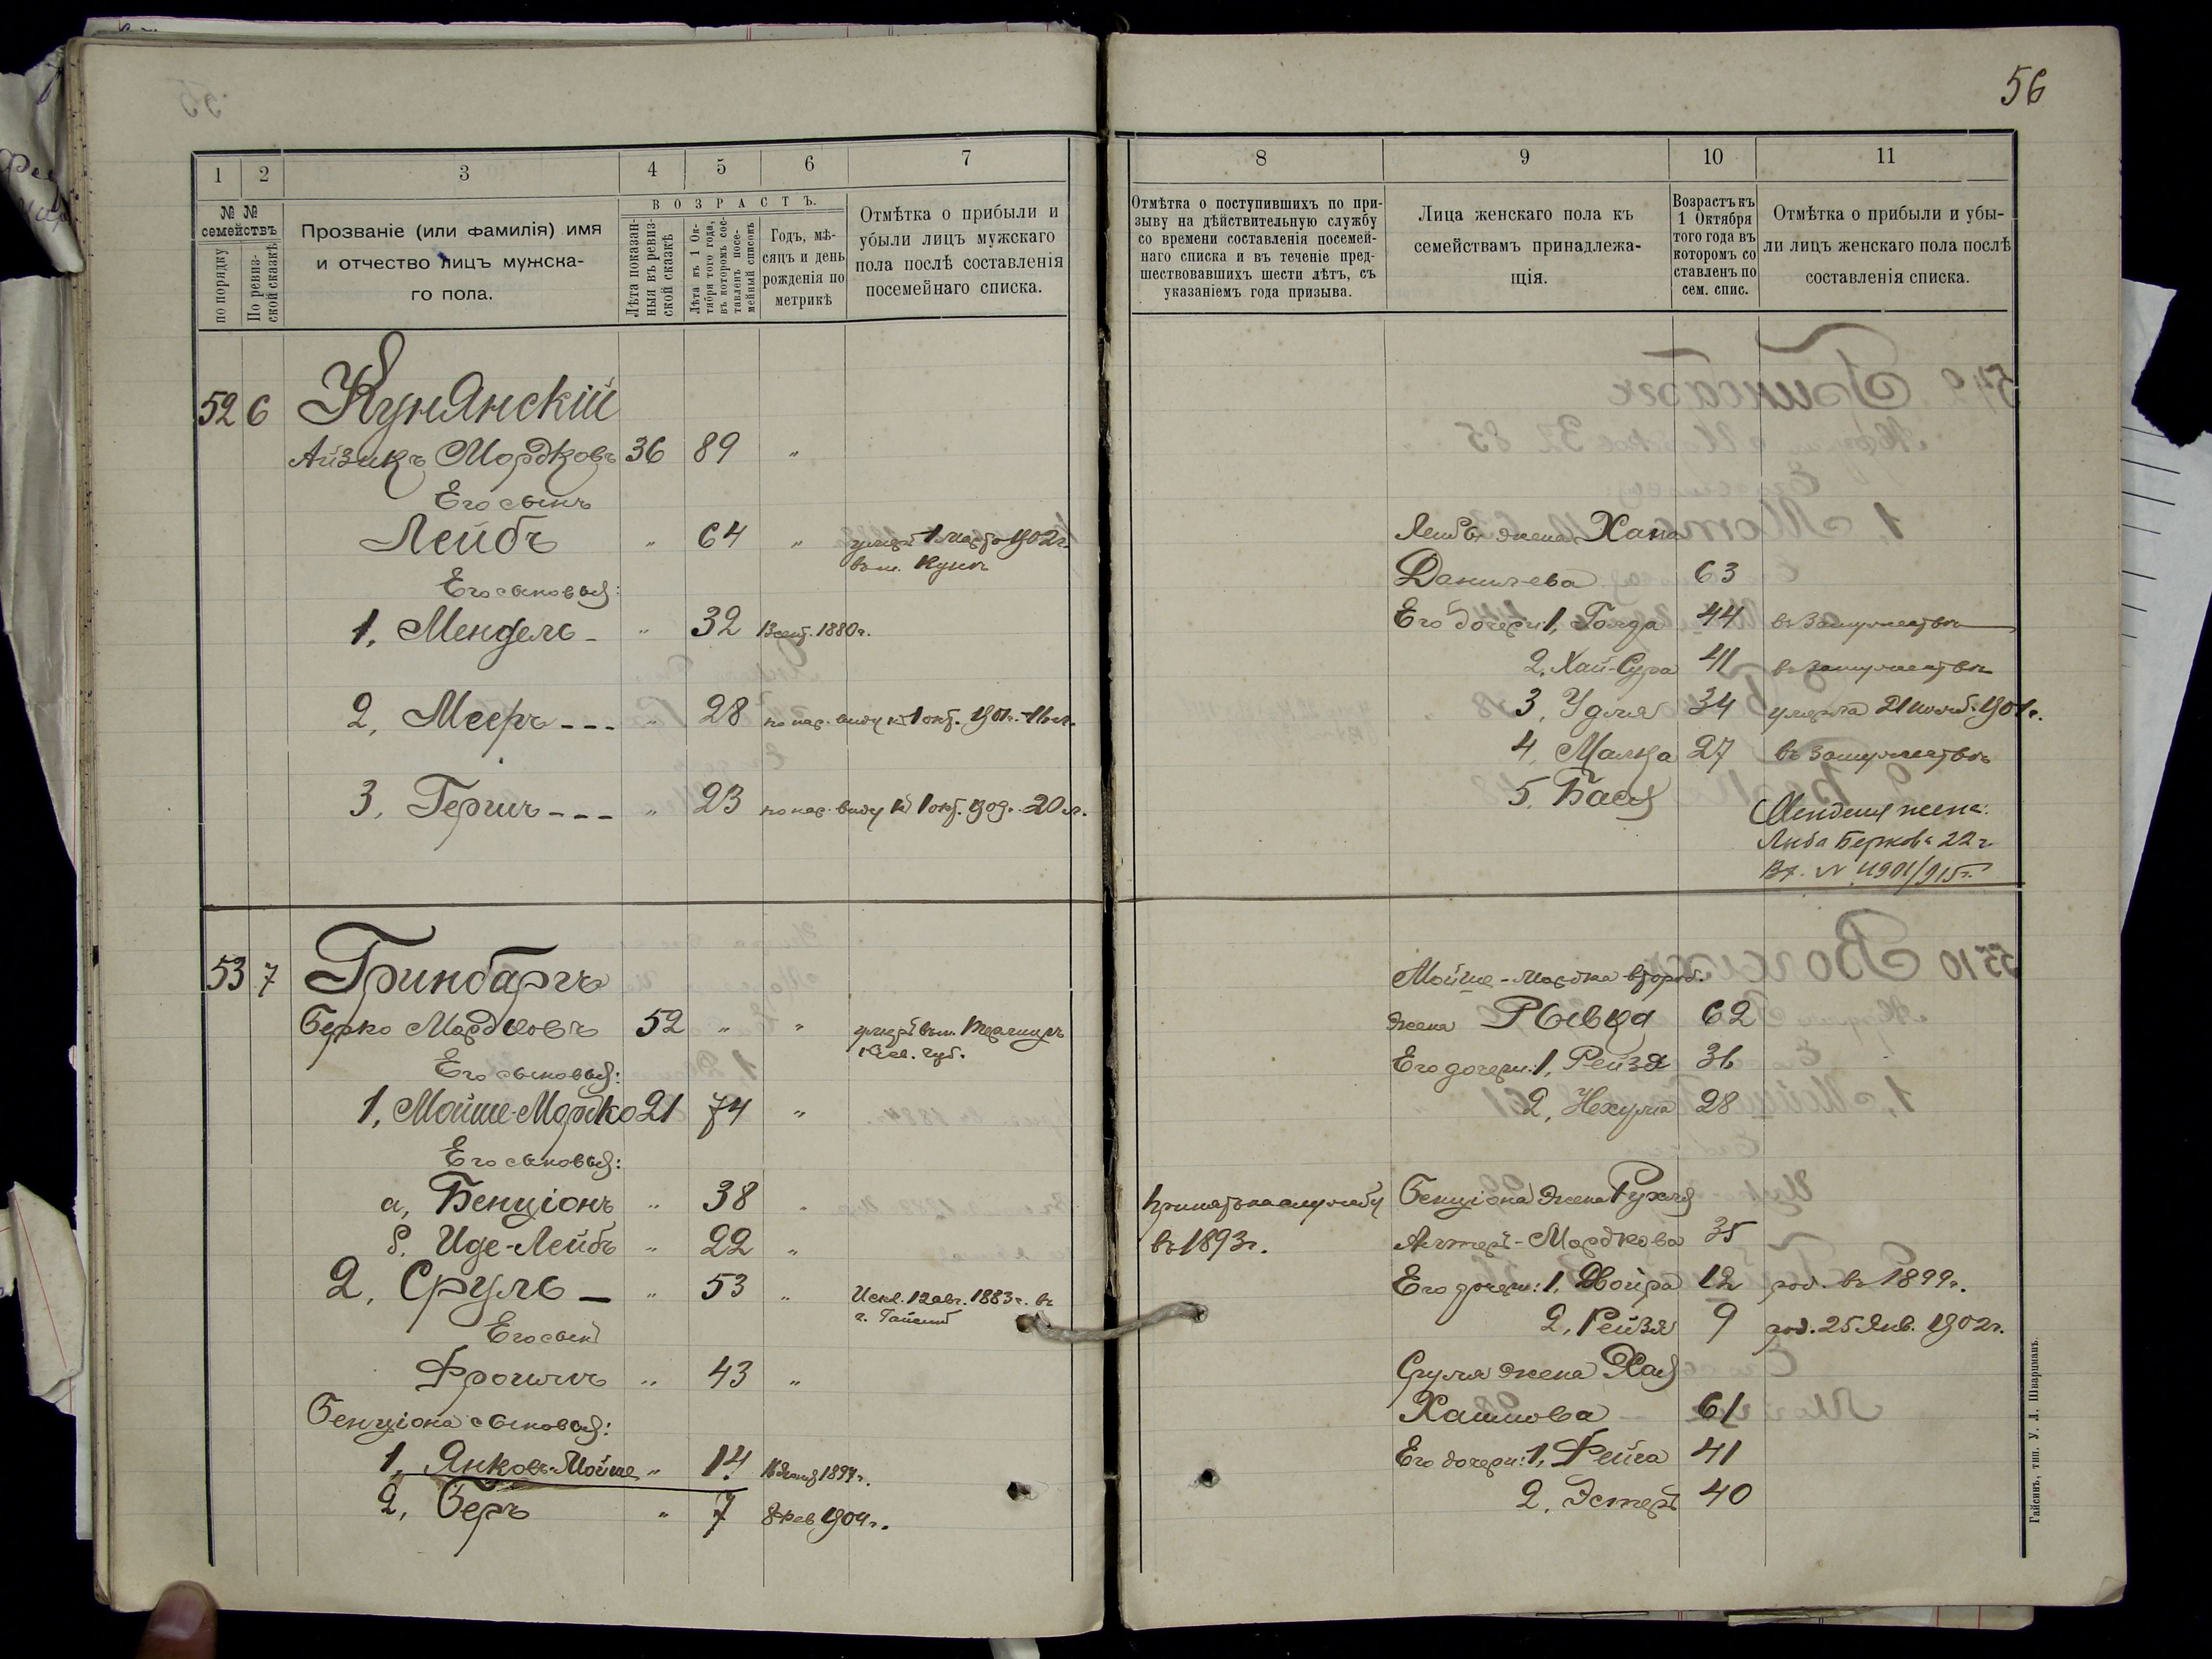 56
1 2 3 4 5 6 7
№ № семействъ
по порядку
По ревиз-
ской сказкѣ
Прозваніе (или фамилія) имя
и отчество лицъ мужска-
го пола.
ВОЗРАСТЪ.
Лѣта показан-
ныя въ ревиз-
ской сказкѣ
Лѣта къ 1 Ок-
тября того года,
въ которомъ сос-
тавленъ посе-
мейный списокъ
Годъ, мѣ-
сяцъ и день
рожденія по
метрикѣ
Отмѣтка о прибыли и
убыли лицъ мужскаго
пола послѣ составленія
посемейнаго списка.
52 6 Кунянскій
Айзикъ Мордковъ 36 89 "
Его сынъ
Лейбъ " 64 " умеръ 1 марта 1902 г.
въ м. Кунѣ
Его сыновья:
1, Мендель - " 32 13 сент. 1880 г.
2, Мееръ - - - " 28 по нар. виду къ 1 окт. 1901 г.
3, Гершъ - - - " 23 по нар. виду къ 1 окт. 1909 г. 20 л.
53 7 Гринбаргъ
Берко Мордковъ 52 " " умеръ въ м.
Кіев. губ.
Его сыновья:
1, Мойше-Мордко 21 74 "
Его сыновья:
а, Бенціонъ " 38 "
б, Иде-Лейбъ " 22 "
2, Сруль — " 53 " Искл. 12 авг. 1883 г. въ
г. Гайсинъ
Его сынъ
Фроимъ " 43 "
Бенціона сыновья:
1, Янкель-Мойше " 14 1897 г.
2, Беръ " 7 8 фев 1904 г.
8 9 10 11
Отмѣтка о поступившихъ по при-
зыву на дѣйствительную службу
со времени составленія посемей-
наго списка и въ теченіе пред-
шествовавшихъ шести лѣтъ, съ
указаніемъ года призыва.
Лица женскаго пола къ
семействамъ принадлежа-
щія.
Возрастъ къ
1 Октября
того года въ
которомъ со
ставленъ по
сем. спис.
Отмѣтка о прибыли и убы-
ли лицъ женскаго пола послѣ
составленія списка.
Лейба жена Хана
Данилева 63
Его дочери 1, Голда 44 въ замужествѣ
2, Хай-Сура 41 въ замужествѣ
3, Удля 34 умерла 21 нояб. 1901 г.
4, Малка 27 въ замужествѣ
5, Бася
Менделя жена:
Люба Беркова 22 г.
Вх. № 4901/915 г.
Мойше-Мордка вторая
жена Рывка 62
Его дочери: 1, Рейзя 36
2, Нехума 28
Принятъ на службу
въ 1893 г.
Бенціона жена Рухля
Мордкова 35
Его дочери: 1, Двойра 12 род. въ 1899 г.
2, Рейзя 9 род. 25 Янв. 1902 г.
Сруля жена Хая
Хаимова 61
Его дочери: 1, Фейга 41
2, Эстеръ 40
Гайсинъ, тип. У. Л. Шварцманъ.